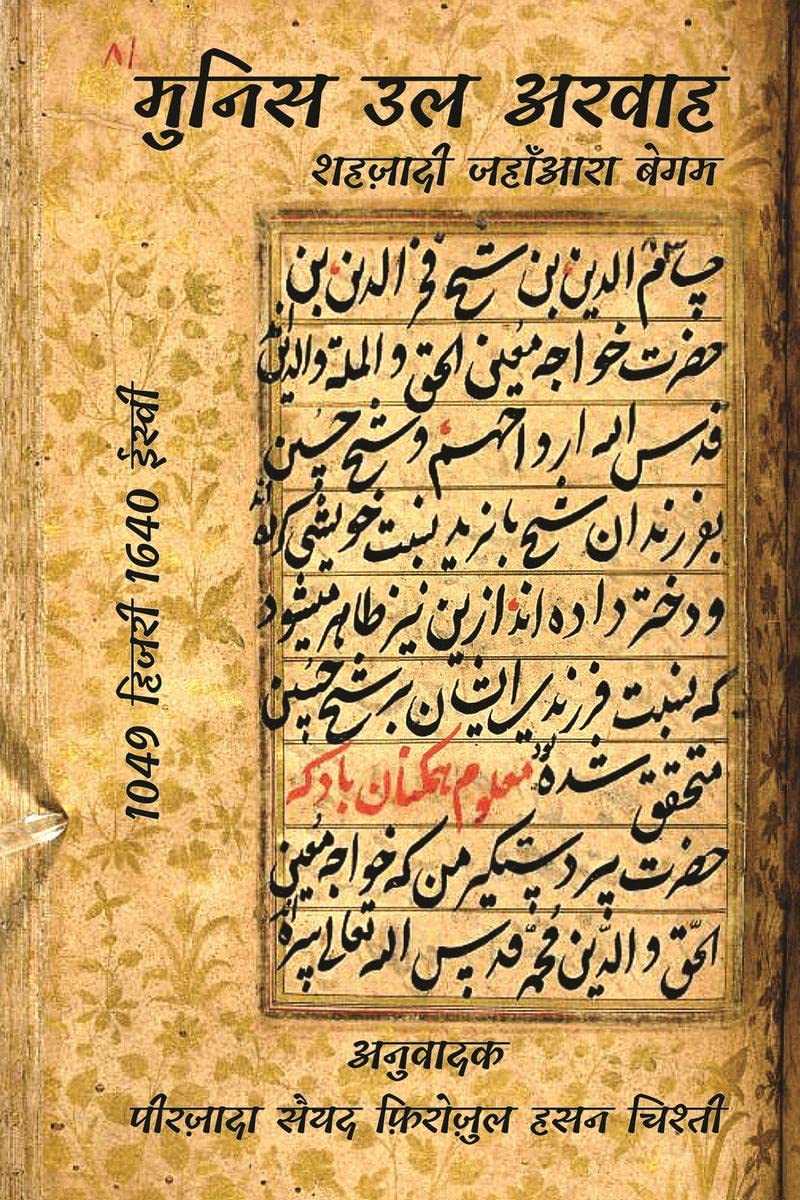 ۸۱
मुनिस उल अरवाह
शहज़ादी जहाँआरा बेगम
حسام الدین بن شیخ فخر الدین بن
حضرت خواجه معین الحق و الملة والدین
قدس الله ارواحهم و شیخ حسین
بفرزندان شیخ بایزید نسبت خویشی کرده
و دختر داده اند ازین نیز ظاهر میشود
که نسبت فرزندی ایشان بر شیخ حسین
متحقق شده معلوم همکنان باد که
حضرت پیر دستگیر من که خواجه معین
الحق و الدین محمد قدس الله تعالی سره
1049 हिजरी 1640 ईस्वी
अनुवादक
पीरज़ादा सैयद फ़िरोज़ुल हसन चिश्ती